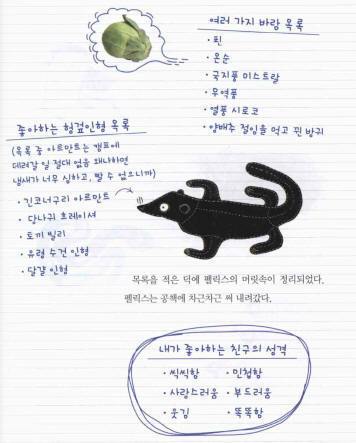 여러 가지 바람 목록
· 푄
· 온순
· 국지풍 미스트랄
· 무역풍
· 열풍 시로코
· 양배추 절임을 먹고 뀐 방귀
좋아하는 헝겊인형 목록
(목록 중 아르만트는 캠프에
데려갈 일 절대 없음 왜냐하면
냄새가 너무 심하고, 빨 수 없으니까)
· 긴코너구리 아르만트
· 당나귀 호레이셔
· 토끼 빌리
· 유령 수건 인형
· 달걀 인형
목록을 적은 덕에 펠릭스의 머릿속이 정리되었다.
펠릭스는 공책에 차근차근 써 내려갔다.
내가 좋아하는 친구의 성격
· 씩씩함 · 민첩함
· 사랑스러움 · 부드러움
· 웃김 · 똑똑함